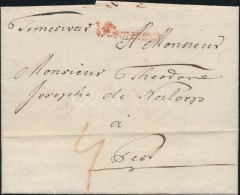 Temesvar
A Monsieur
Monsieur Theodore
Josephe de Natorp
à
Pest